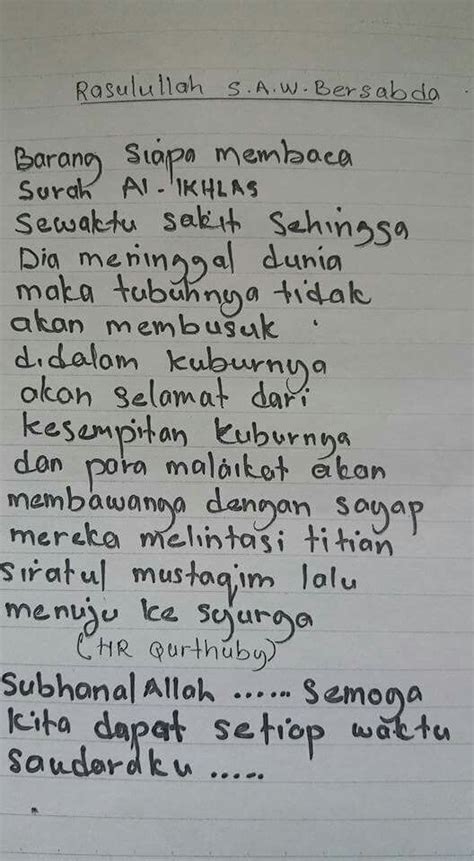 Rasulullah S.A.W. Bersabda
Barang Siapa membaca
Surah Al-IKHLAS
Sewaktu sakit Sehingga
Dia meninggal dunia
maka tubuhnya tidak
akan membusuk
didalam kuburnya
akan selamat dari
kesempitan kuburnya
dan para malaikat akan
membawanga dengan sayap
mereka melintasi titian
siratul mustaqim lalu
menuju ke syurga
(HR Qurthuby)
Subhanal Allah ...... Semoga
kita dapat setiap waktu
saudaraku .....